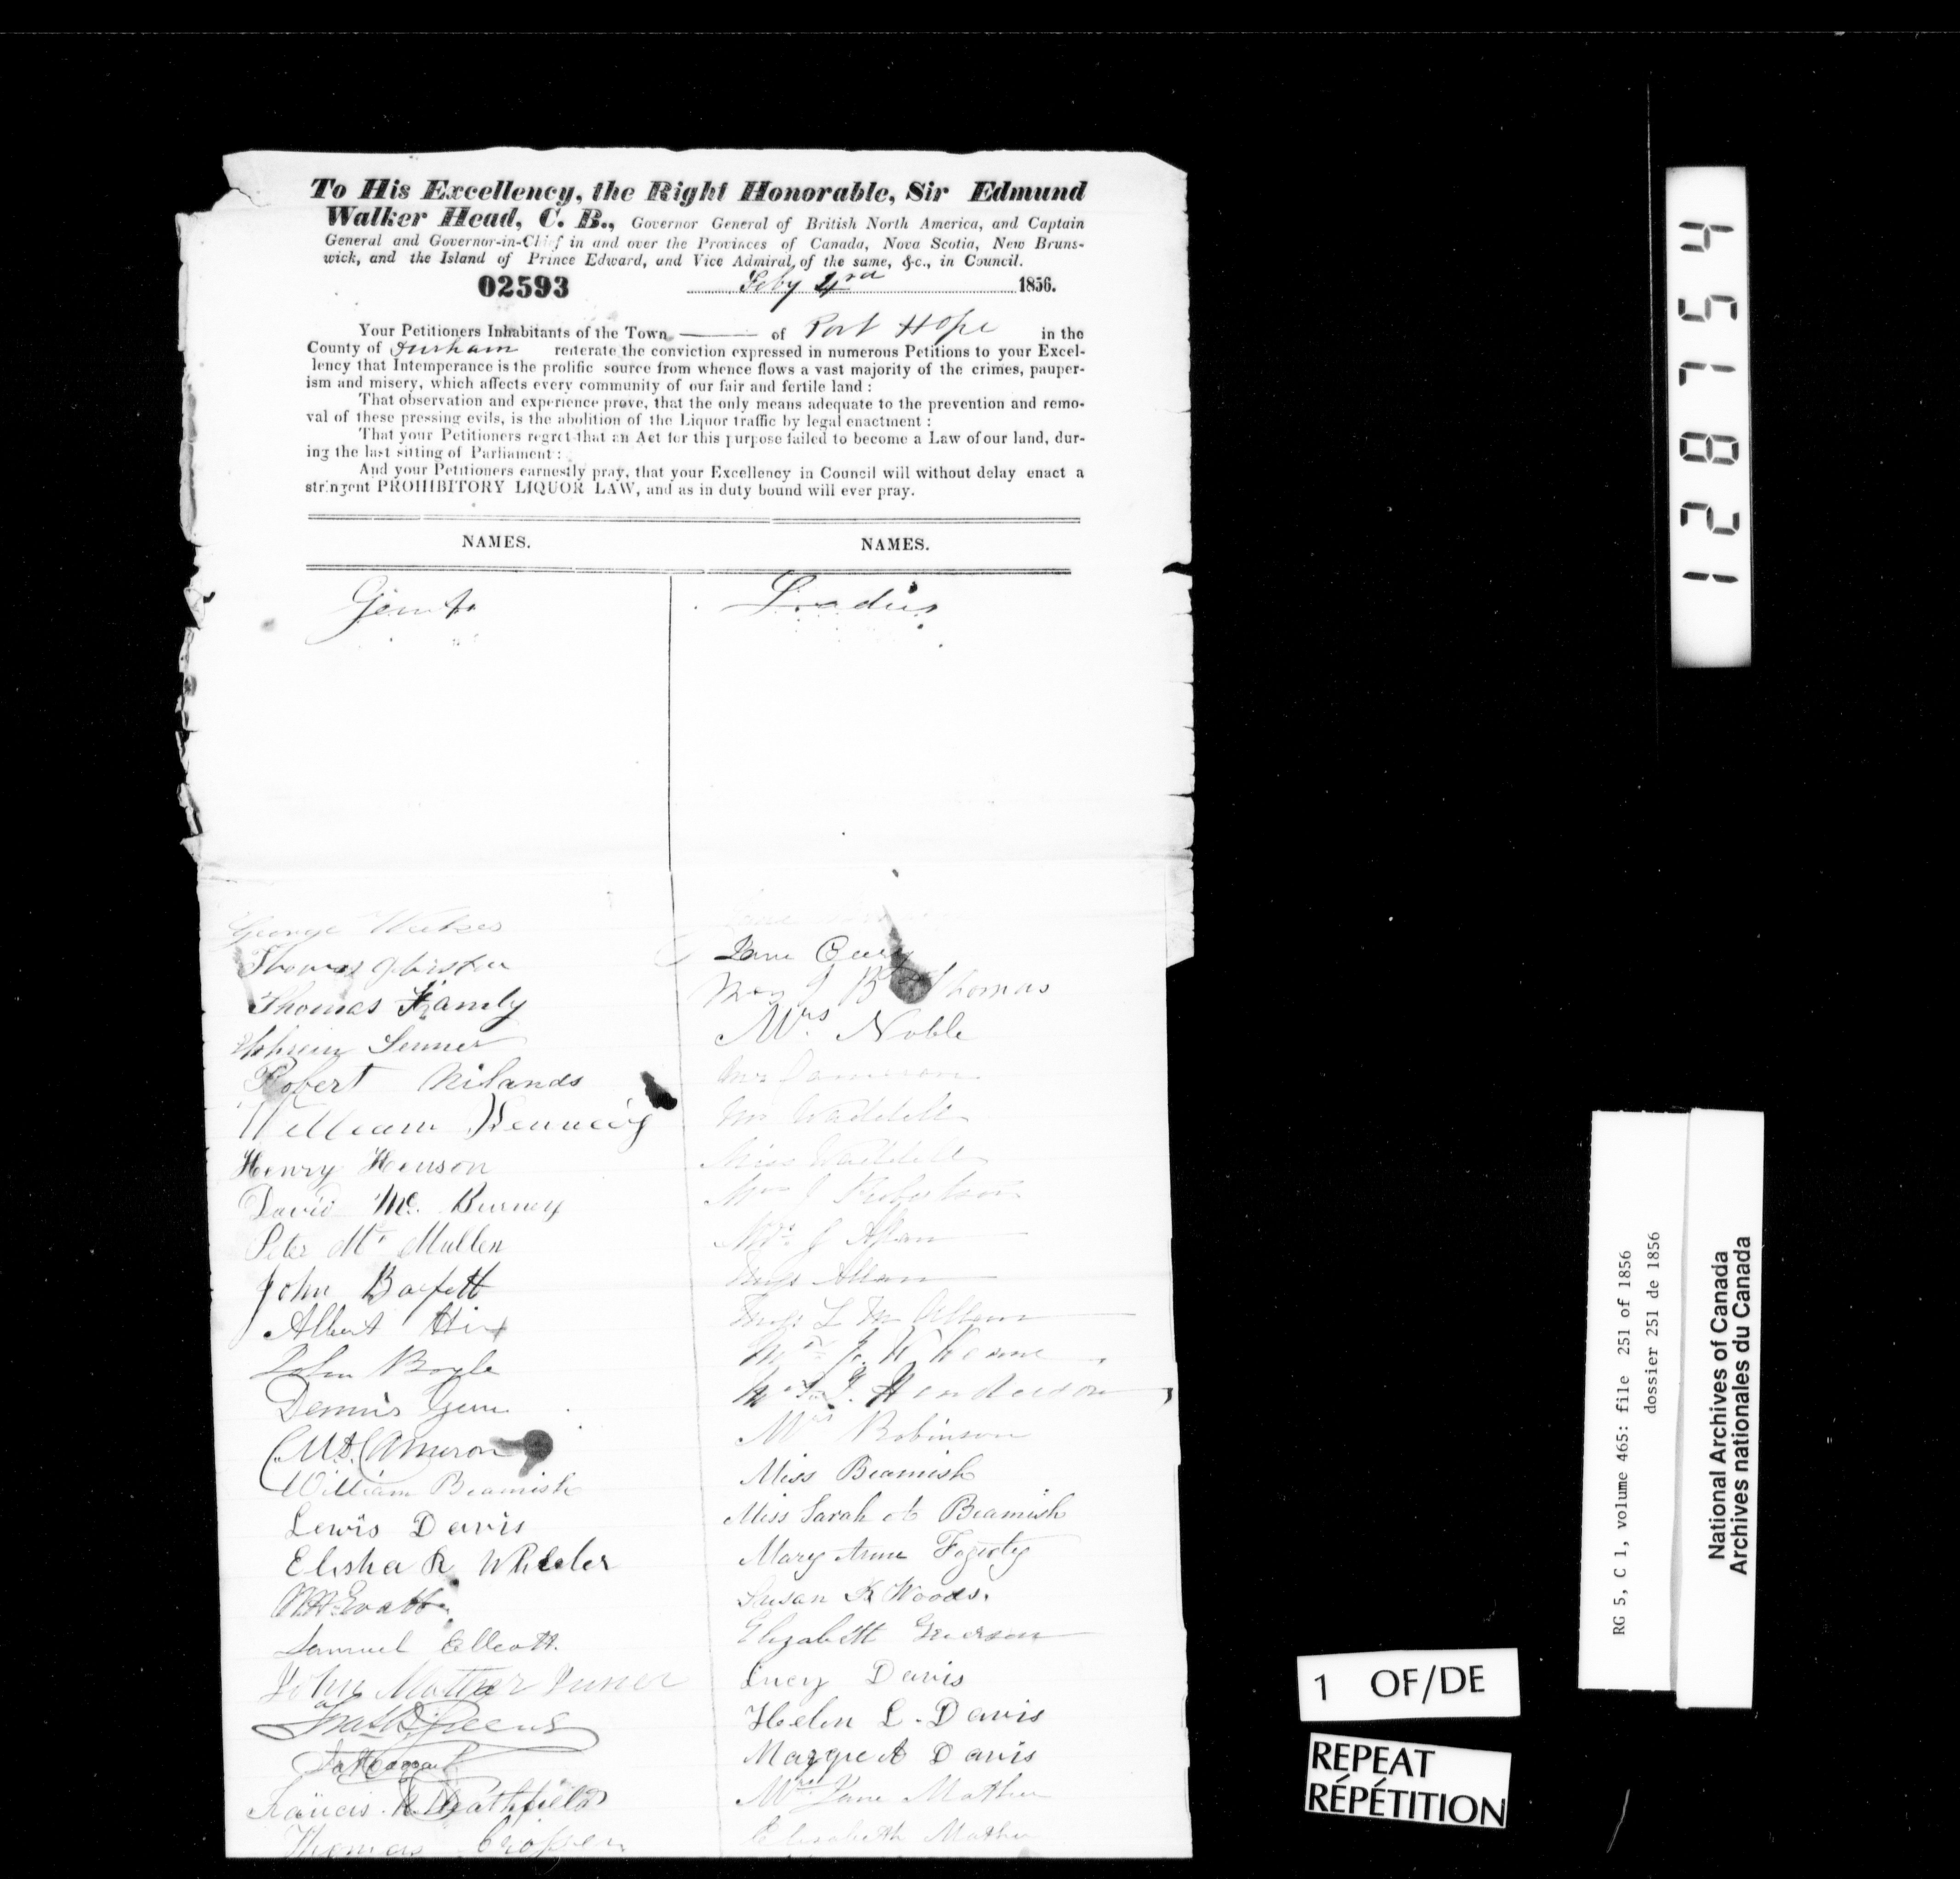 To His Excellency, the Right Honorable, Sir Edmund
Walker Head, C. B., Governor General of British North America, and Captain
General and Governor-in-Chief in and over the Provinces of Canada, Nova Scotia, New Bruns-
wick, and the Island of Prince Edward, and Vice Admiral of the same, &c., in Council.
02593 Feby 4rd 1856.
Your Petitioners Inhabitants of the Town of Port Hope in the
County of Durham reiterate the conviction expressed in numerous Petitions to your Excel-
lency that Intemperance is the prolific source from whence flows a vast majority of the crimes, pauper-
ism and misery, which affects every community of our fair and fertile land :
That observation and experience prove, that the only means adequate to the prevention and remo-
val of these pressing evils, is the abolition of the Liquor traffic by legal enactment :
That your Petitioners regret that an Act for this purpose failed to become a Law of our land, dur-
ing the last sitting of Parliament :
And your Petitioners earnestly pray, that your Excellency in Council will without delay enact a
stringent PROHIBITORY LIQUOR LAW, and as in duty bound will ever pray.
NAMES. NAMES.
Gents Ladies
George
Thomas
Thomas Hamly
Robert Nilands
William
Henry Henson
David Mc. Burney
Peter Mc Mullen
John Barfett
Albert Hix
John Boyle
Dennis
Cameron
William Beamish
Lewis Davis
Elisha R Wheeler
Samuel
John Mather
Francis
Thomas
Jane
Mrs J B Thomas
Mrs Noble
Mrs Cameron
Mrs Waddell
Miss Waddell
Mrs J Robertson
Mrs J
Miss Allan
Miss L M
Mrs
Mrs Henderson
Mrs Robinson
Miss Beamish
Miss Sarah A Beamish
Mary Anne Fogerty
Susan K Woods.
Elizabeth Grierson
Lucy Davis
Helen L. Davis
Margret Davis
Mrs Jane Mather
Elisabeth Mather
128754
RG 5, C 1, volume 465: file 251 of 1856
dossier 251 de 1856
National Archives of Canada
Archives nationales du Canada
1 OF/DE
REPEAT
RÉPÉTITION